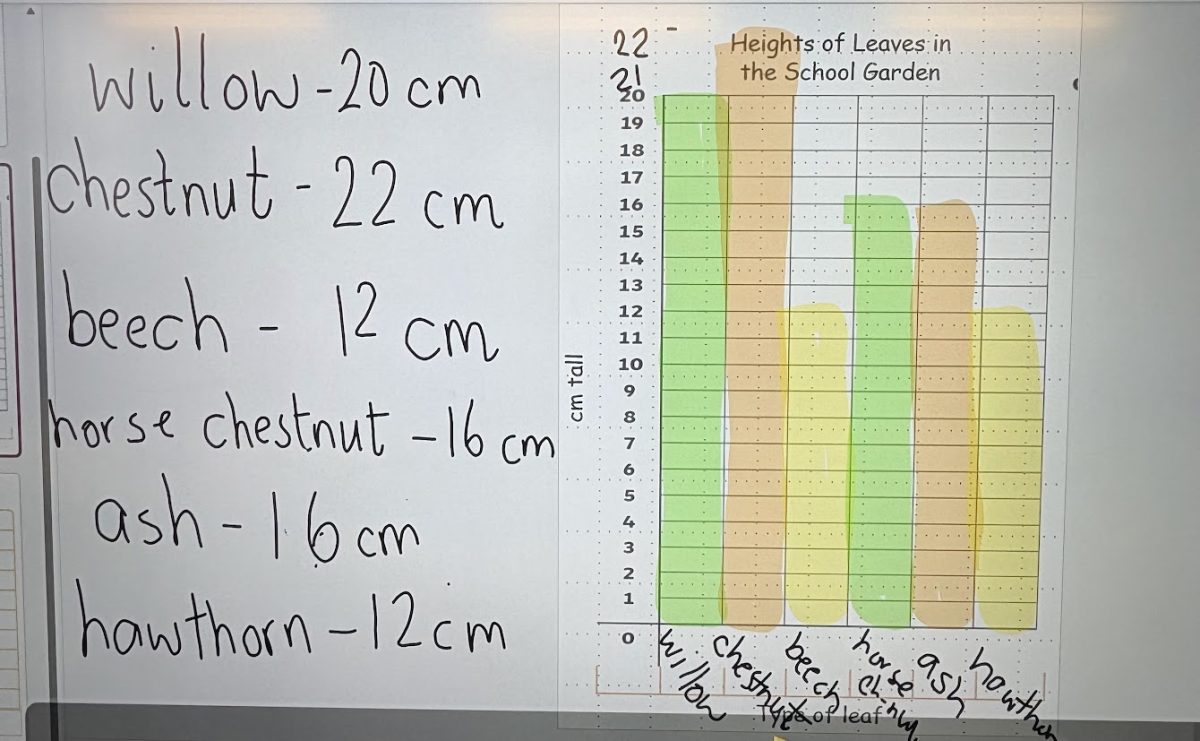 willow - 20 cm
chestnut - 22 cm
beech - 12 cm
horse chestnut - 16 cm
ash - 16 cm
hawthorn - 12 cm
Heights of Leaves in
the School Garden
22
21
20
19
18
17
16
15
14
13
12
11
10
9
8
7
6
5
4
3
2
1
0
cm tall
willow
chestnut
beech
horse
ash
Type of leaf